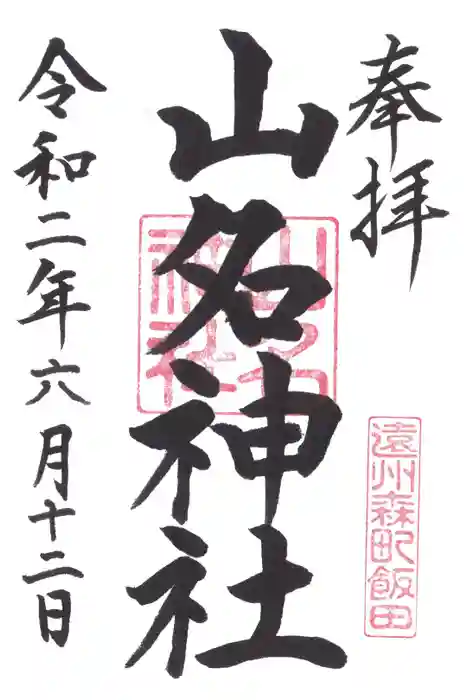 奉拝
遠州森町飯田
山名神社
山名
神社
令和二年六月十二日